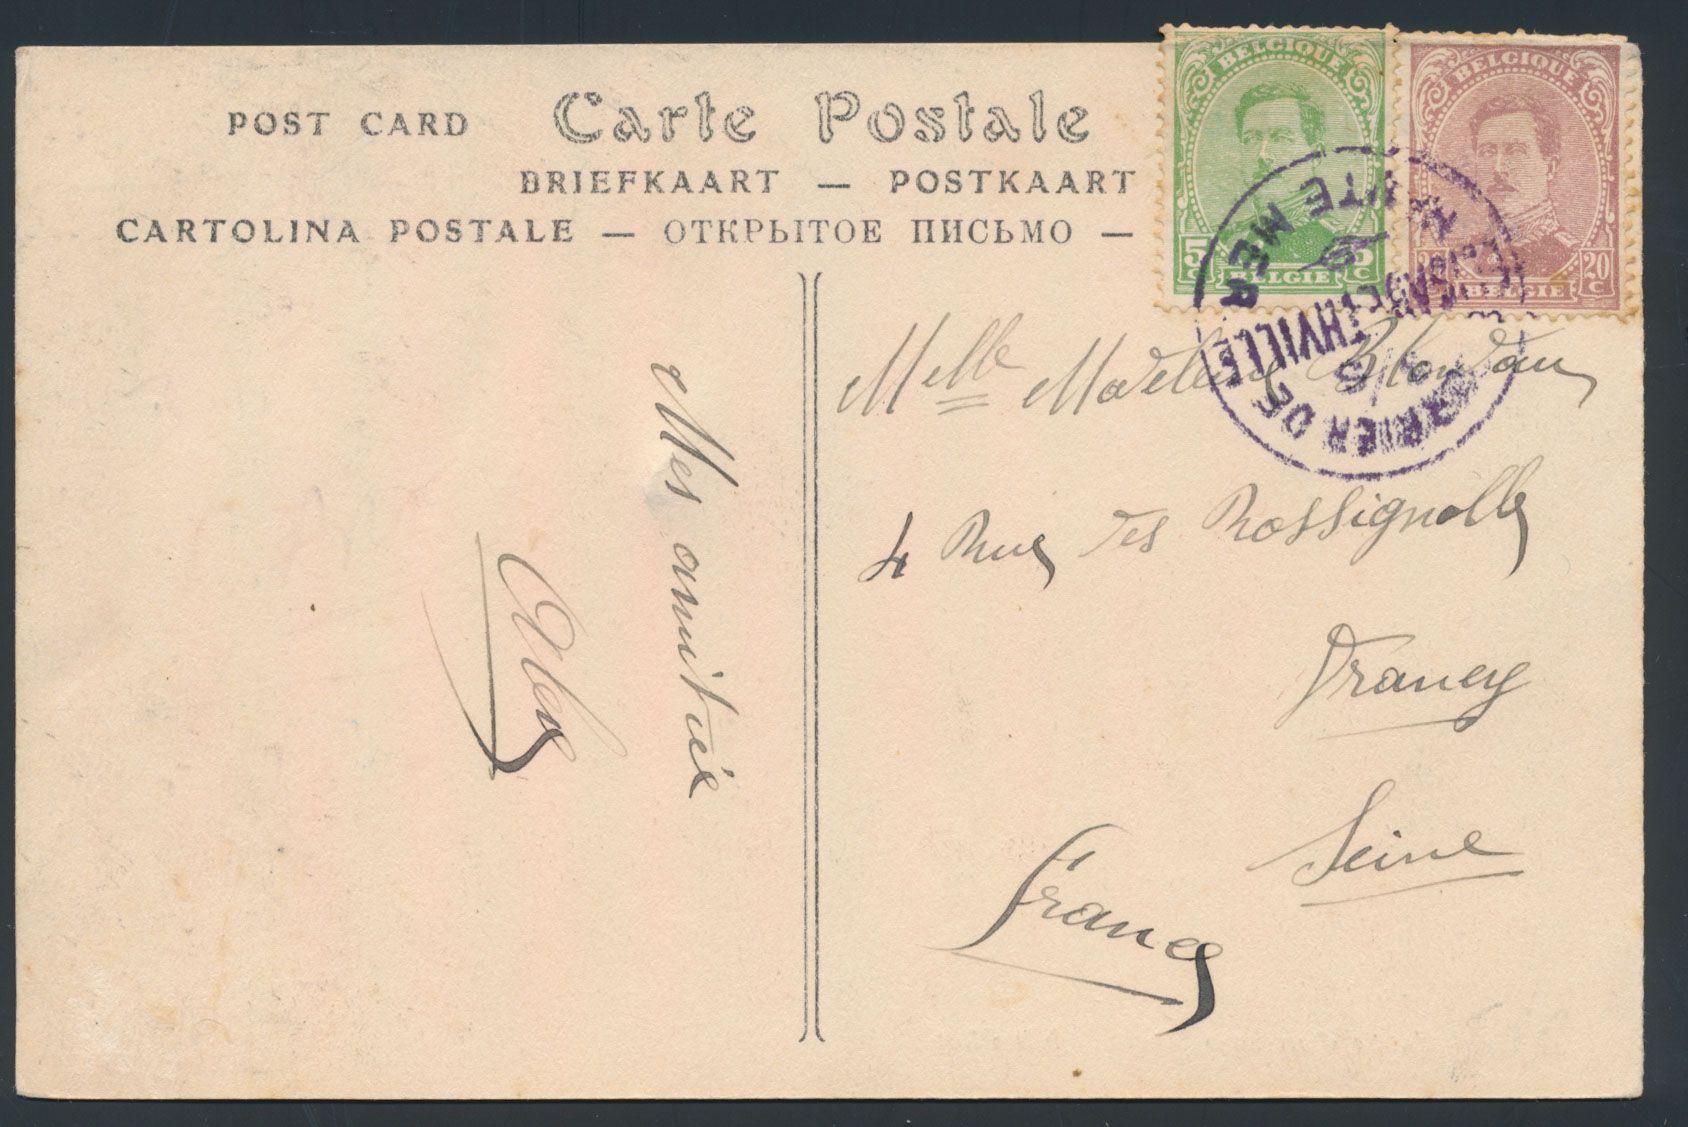 POST CARD Carte Postale
BRIEFKAART — POSTKAART
CARTOLINA POSTALE — ОТКРЫТОЕ ПИСЬМО —
BELGIQUE
5 C 5 C
BELGIE
BELGIQUE
20 C
BELGIE
COURRIER DE HAUTE MER
Mes amitiés
Melle Madeleine
4 Rue des Rossignolls
Drancy
Seine
France